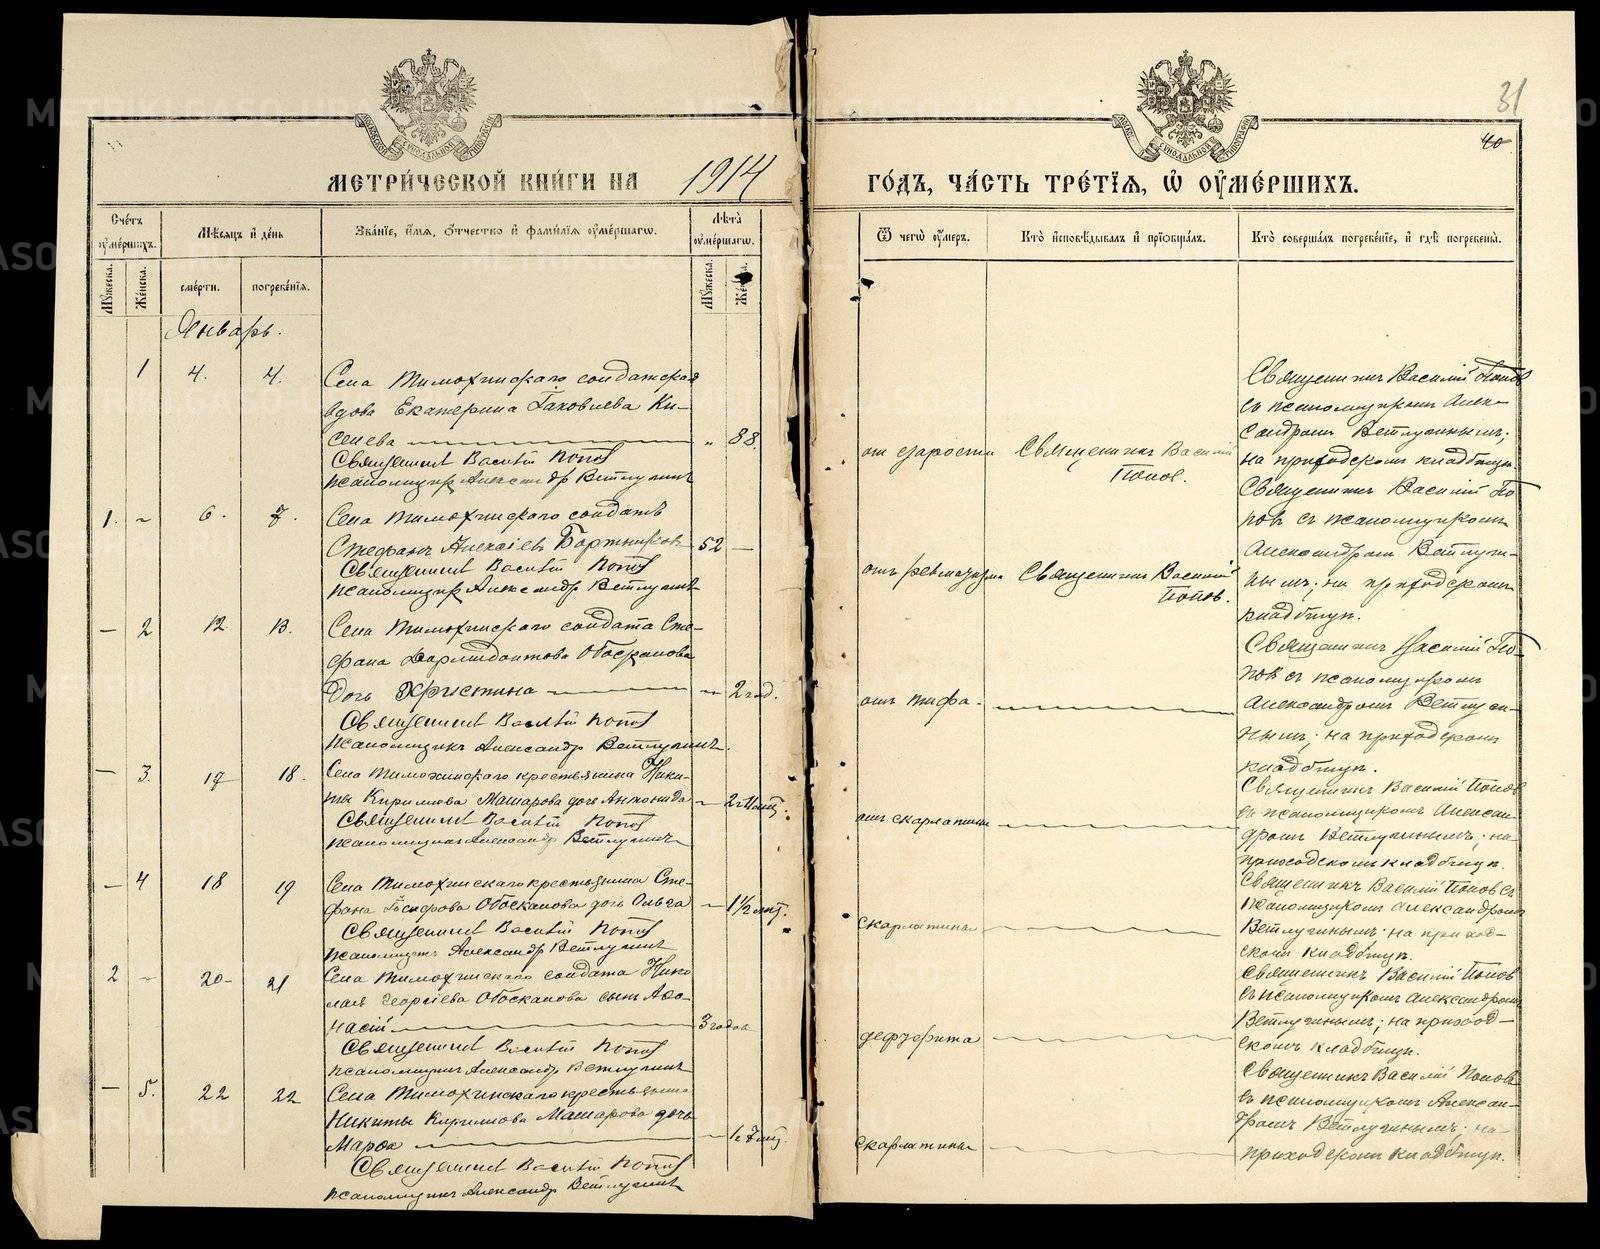 МЕТРИ́ЧЕСКОЙ КНИ́ГИ НА 1914
ГО́ДЪ, ЧА́СТЬ ТРЕ́ТІѦ, Ѡ҆ ОУ҆МЕ́РШИХЪ.
31
40
Сче́тъ оу҆ме́ршихъ.
Мѣсяцъ и҆ де́нь
Зва́ніе, и҆́мя, ѻ҆́тчество и҆ фами́лія оу҆ме́ршагѡ.
Лѣ́та оу҆ме́ршагѡ.
Ѿ чегѡ̀ оу҆́меръ.
Кто̀ и҆сповѣ́дывалъ и҆ прїѡбща́лъ.
Кто̀ соверша́лъ погребе́ніе, и҆ гдѣ̀ погребены̀.
Мꙋ́жеска.
Же́нска.
сме́рти.
погребе́нія.
Мꙋ́жеска.
Январь.
1 4. 4.
Села Тимохинскаго солдатская
вдова Екатерина Іаковлева Ки-
селева
„ 88.
Священникъ Василій Попов
псаломщикъ Александр Ветлугинъ
от старости
Священникъ Василій
Попов.
Священникъ Василій Попов
съ псаломщикомъ Алек-
сандромъ Ветлугинымъ;
на приходскомъ кладбищѣ.
1. 6. 7.
Села Тимохинскаго солдатъ
Стефанъ Алексіевъ Бортниковъ
52 —
Священникъ Василій Попов
псаломщикъ Александръ Ветлугинъ
отъ ревматизма
Священникъ Василій
Попов.
Священникъ Василій По-
повъ съ псаломщикомъ
Александромъ Ветлуги-
нымъ; на приходскомъ
кладбищѣ.
— 2 12. 13.
Села Тимохинскаго солдата Сте-
фана Обоскалова
дочь Христина
— 2 год.
Священникъ Василій Попов
псаломщикъ Александръ Ветлугинъ.
отъ тифа.
Священникъ Василій По-
повъ съ псаломщикомъ
Александромъ Ветлуги-
нымъ; на приходскомъ
кладбищѣ.
— 3. 17 18.
Села Тимохинскаго крестьянина Ники-
ты Кирилова Машарова дочь Антонида
Священникъ Василій Попов
псаломщикъ Александръ Ветлугинъ
отъ скарлатины
Священникъ Василій Попов
съ псаломщикомъ Алексан-
дромъ Ветлугинымъ; на
приходскомъ кладбищѣ.
— 4 18 19
Села Тимохинскаго крестьянина Сте-
фана Обоскалова дочь Ольга
— 1½ лѣт.
Священникъ Василій Попов
псаломщикъ Александръ Ветлугинъ
скарлатина
Священникъ Василій Попов съ
псаломщикомъ Александромъ
Ветлугинымъ; на приход-
скомъ кладбищѣ.
2 20 21
Села Тимохинскаго солдата Нико-
лая Георгіева Обоскалова сынъ Афа-
насій
3 годов
Священникъ Василій Попов
псаломщикъ Александръ Ветлугинъ
дефтерита
Священникъ Василій Попов
съ псаломщикомъ Александромъ
Ветлугинымъ; на приход-
скомъ кладбищѣ.
— 5. 22 22
Села Тимохинскаго крестьянина
Никиты Кирилова Машарова дочь
Священникъ Василій Попов
псаломщикъ Александръ Ветлугинъ
скарлатина
Священникъ Василій Попов
съ псаломщикомъ Алексан-
дромъ Ветлугинымъ; на
приходскомъ кладбищѣ.
METRIKI.GASO-URAL.RU